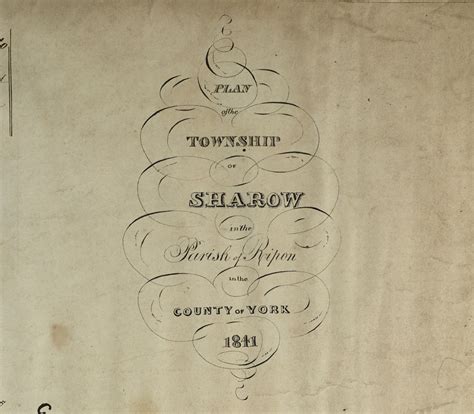 PLAN
of the
TOWNSHIP
OF
SHAROW
in the
Parish of Ripon
in the
COUNTY OF YORK
1841